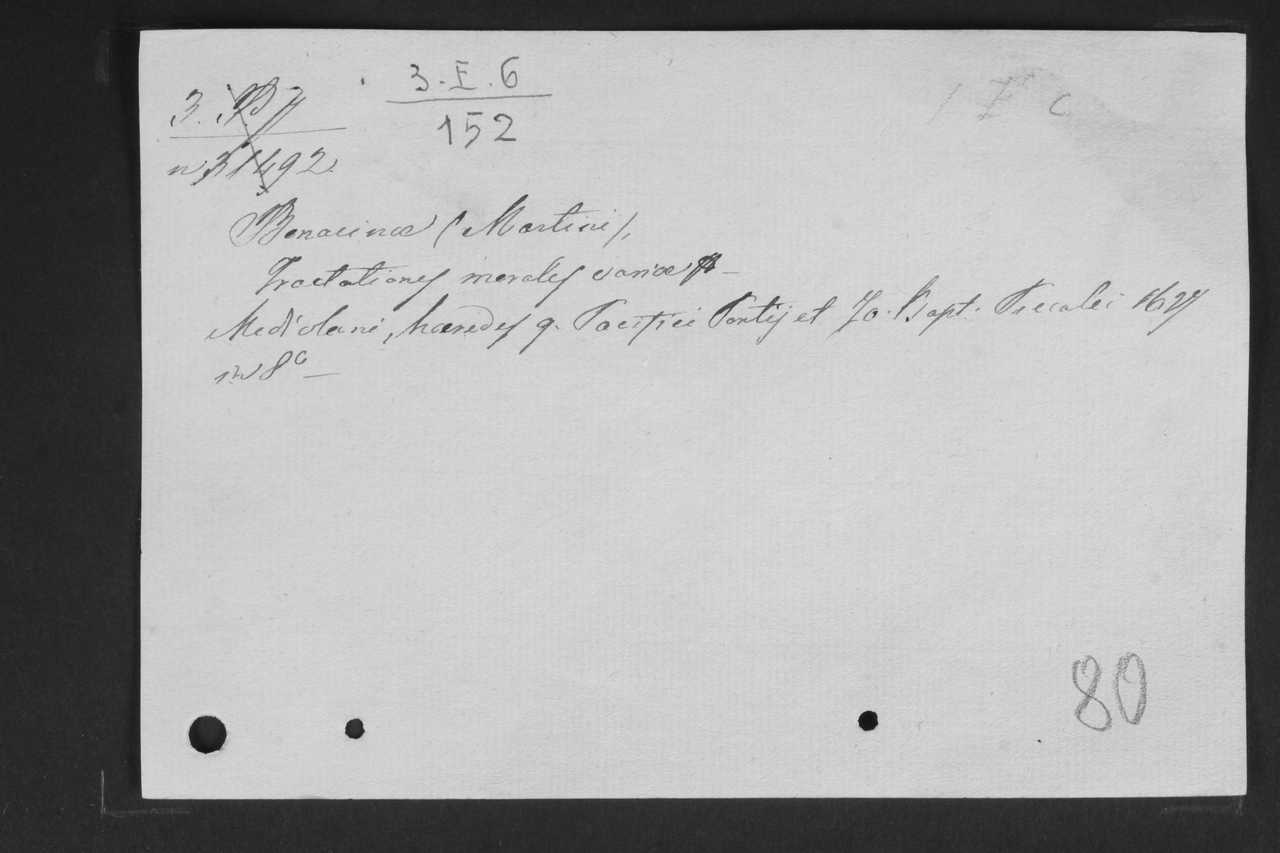 3. B 7
n. 31492.
3. E. 6
152
I E C
Bonacinæ (Martini),
Tractationes morales variæ —
Mediolani, hæredes q. Pacifici Pontij et Jo. Bapt. Piccalei 1627
in 8° —
80